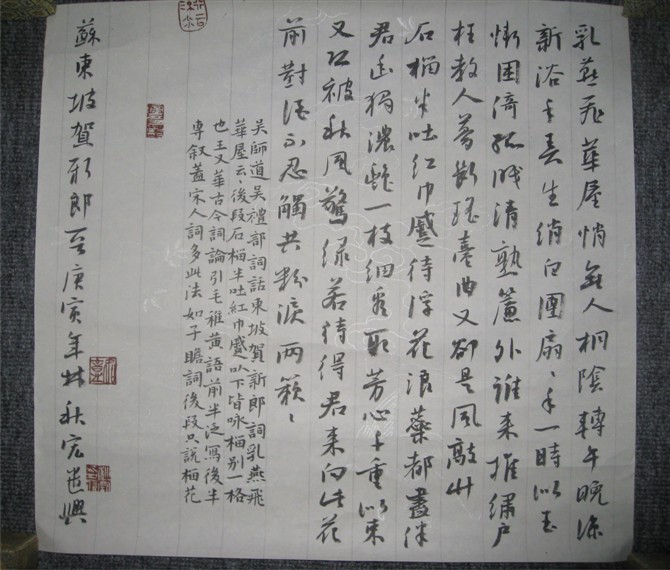 乳燕飛華屋悄無人桐陰轉午晚涼
新浴手弄生綃白團扇扇手一時似玉
漸困倚孤眠清熟簾外誰來推繡戶
枉教人夢斷瑤臺曲又卻是風敲竹
石榴半吐紅巾蹙待浮花浪蕊都盡伴
君幽獨濃艷一枝細看取芳心千重似束
又恐被秋風驚綠若待得君來向此花
前對酒不忍觸共粉淚兩簌簌
吳師道吳禮部詞話東坡賀新郎詞乳燕飛
華屋云云後段石榴半吐紅巾蹙以下皆咏榴別一格
也王又華古今詞論引毛稚黃語前半泛寫後半
專叙蓋宋人詞多此法如子瞻詞後段只說榴花
蘇東坡賀新郎 庚寅年 秋宏